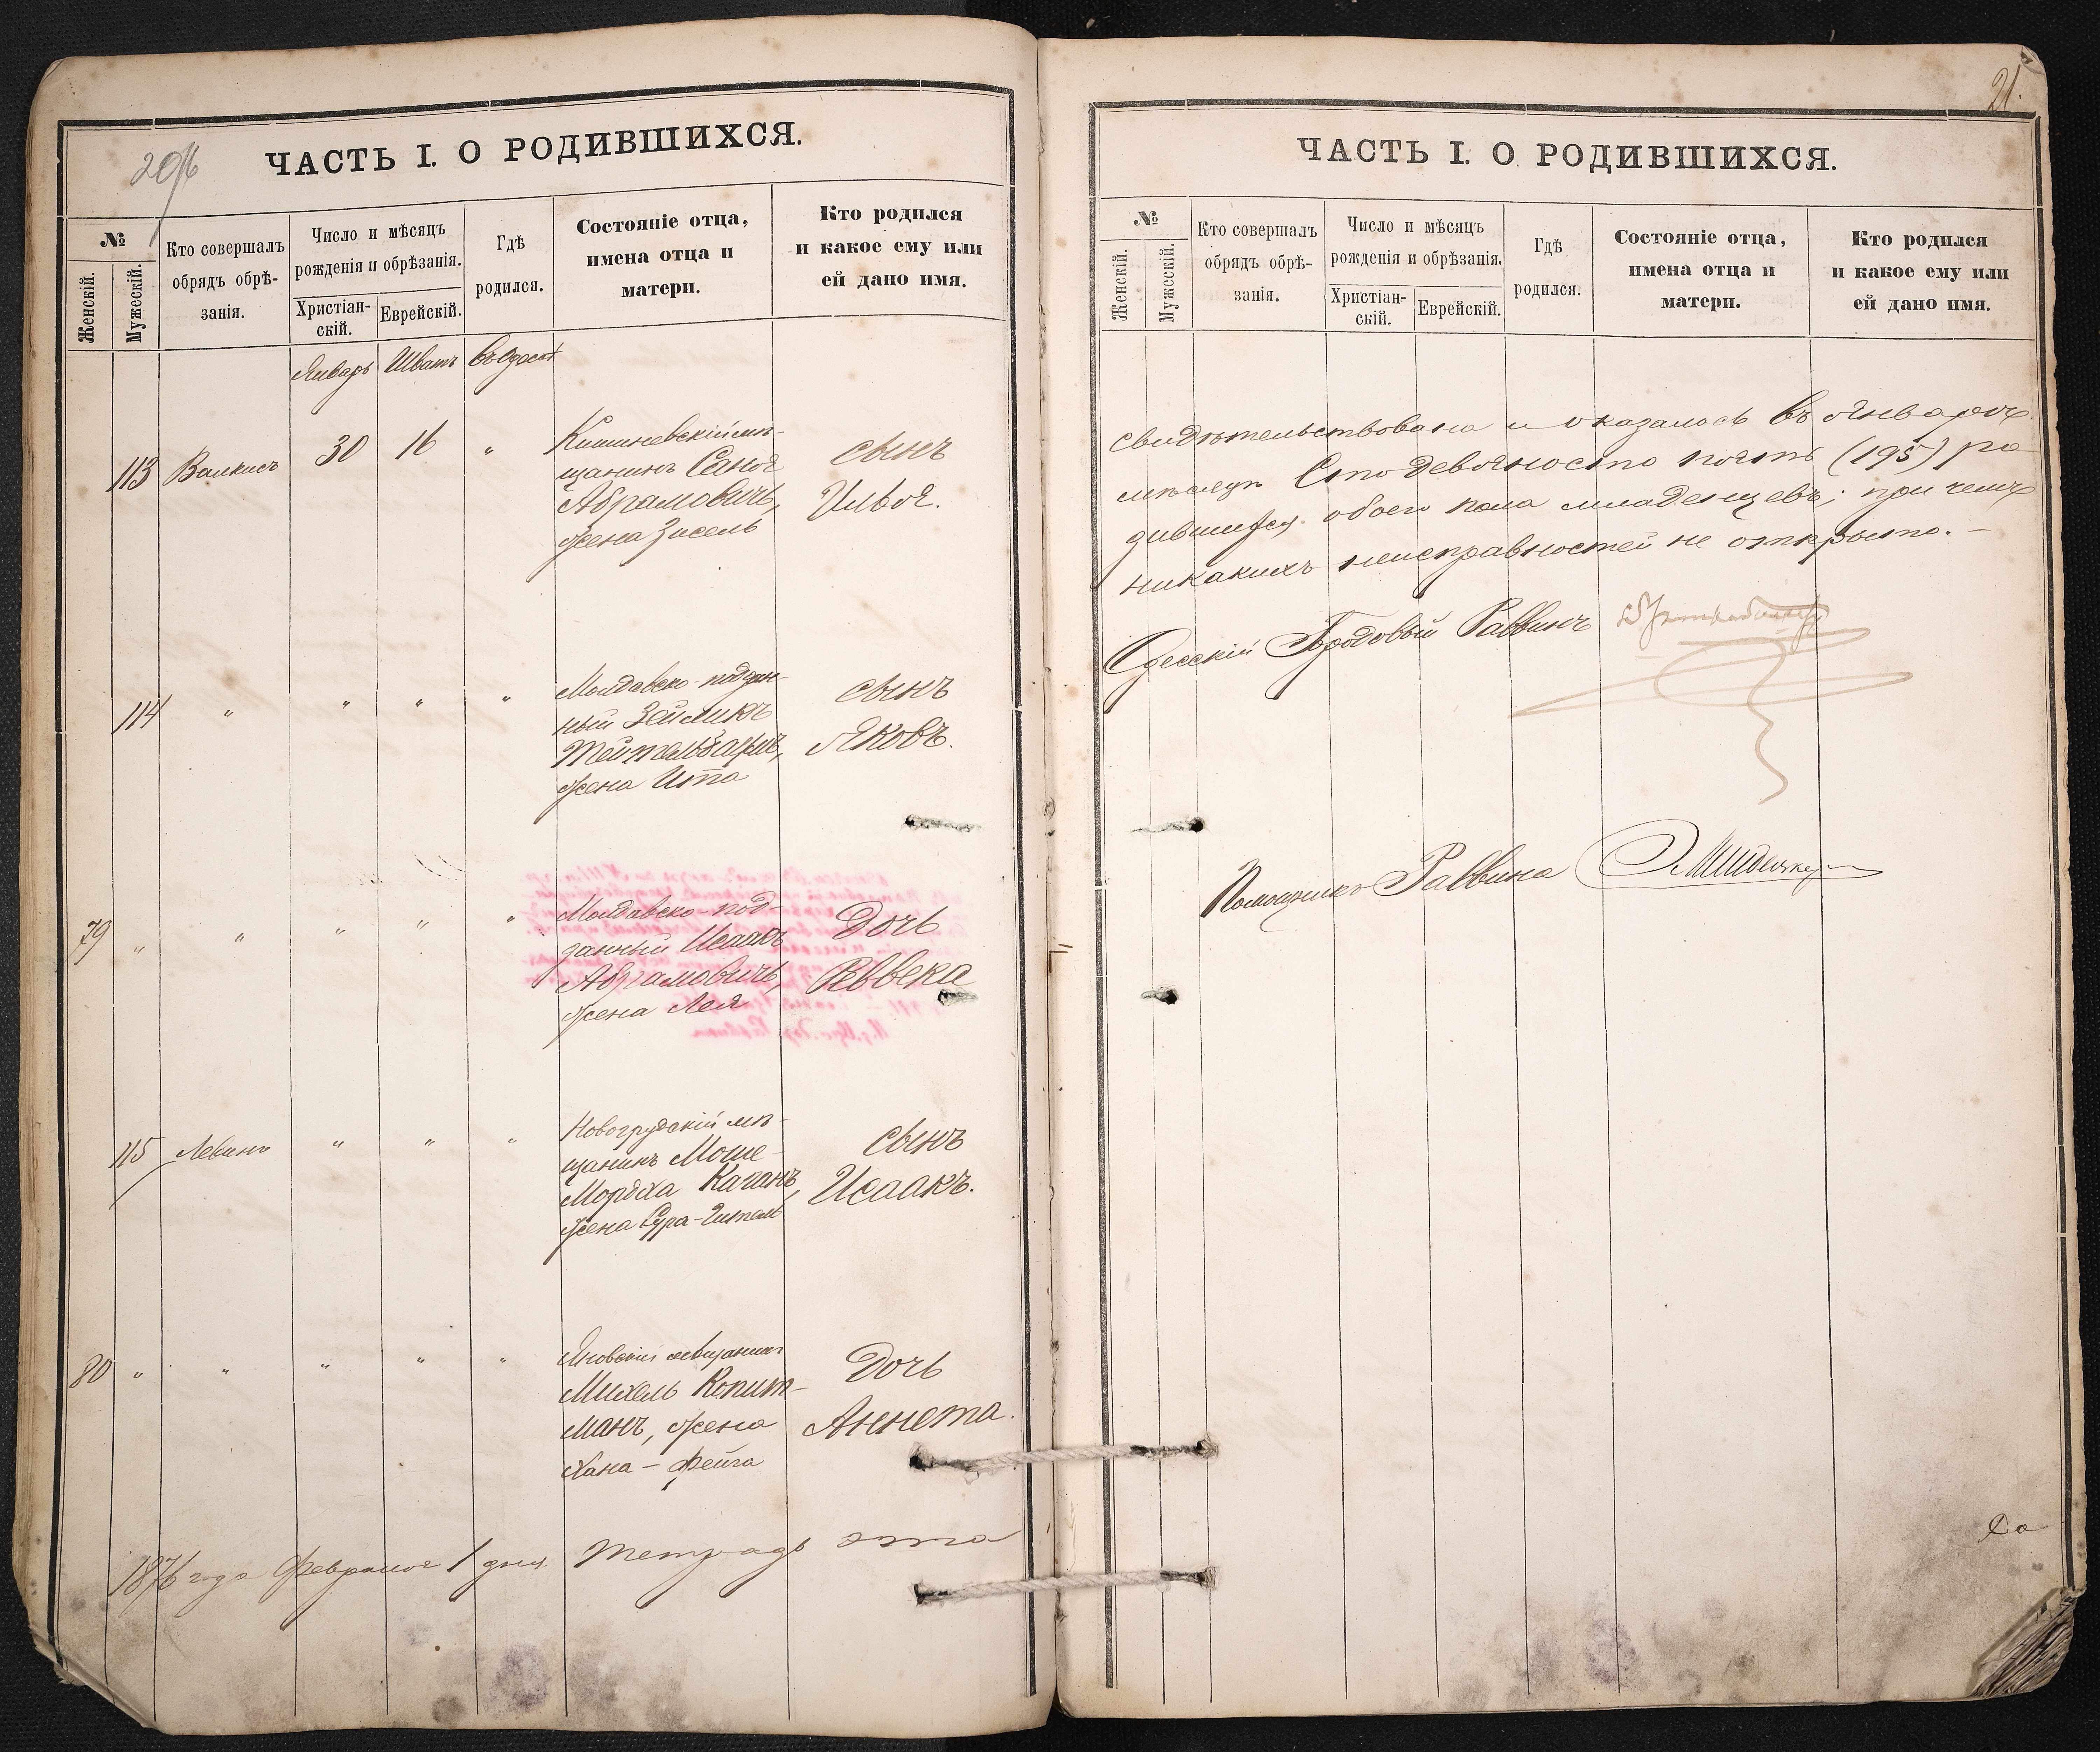 206
ЧАСТЬ I. О РОДИВШИХСЯ.
№
Женскій.
Мужескій.
Кто совершалъ
обрядъ обрѣ-
занія.
Число и мѣсяцъ
рожденія и обрѣзанія.
Христіан-
скій.
Еврейскій.
Гдѣ
родился.
Состояніе отца,
имена отца и
матери.
Кто родился
и какое ему или
ей дано имя.
Январь Шватъ Въ Одессѣ
113 Валкисъ 30 16 "
Кишиневскій мѣ-
щанинъ Саноя
Абрамовичъ,
жена Зисель
сынъ
Илья.
114 " " " "
Молдавско-поддан-
ный Зейликъ
Тейтельбаумъ,
жена Ита
сынъ
Яковъ.
79 " " " " "
Молдавско-под-
данный Исаакъ
Абрамовичъ,
жена Лея
Дочь
Ревека
115 Левинъ " " "
Новогрудскій мѣ-
щанинъ Моше-
Мордха Каганъ,
жена Сура-Гитель
сынъ
Исаакъ.
80 " " " " "
Яновскій мѣщанинъ
Михель Копит-
манъ, жена
Хана-Фейга
Дочь
Аннета.
1876 года Февраля 1 дня Тетрадь эта
21.
ЧАСТЬ I. О РОДИВШИХСЯ.
№
Женскій.
Мужескій.
Кто совершалъ
обрядъ обрѣ-
занія.
Число и мѣсяцъ
рожденія и обрѣзанія.
Христіан-
скій.
Еврейскій.
Гдѣ
родился.
Состояніе отца,
имена отца и
матери.
Кто родился
и какое ему или
ей дано имя.
свидѣтельствована и оказалось въ Январѣ
мѣсяцѣ Сто девяносто пять (195) ро
дившихся обоего пола младенцевъ; при чемъ
никакихъ неисправностей не открыто. —
Одесскій Городовый Раввинъ
Помощникъ Раввина